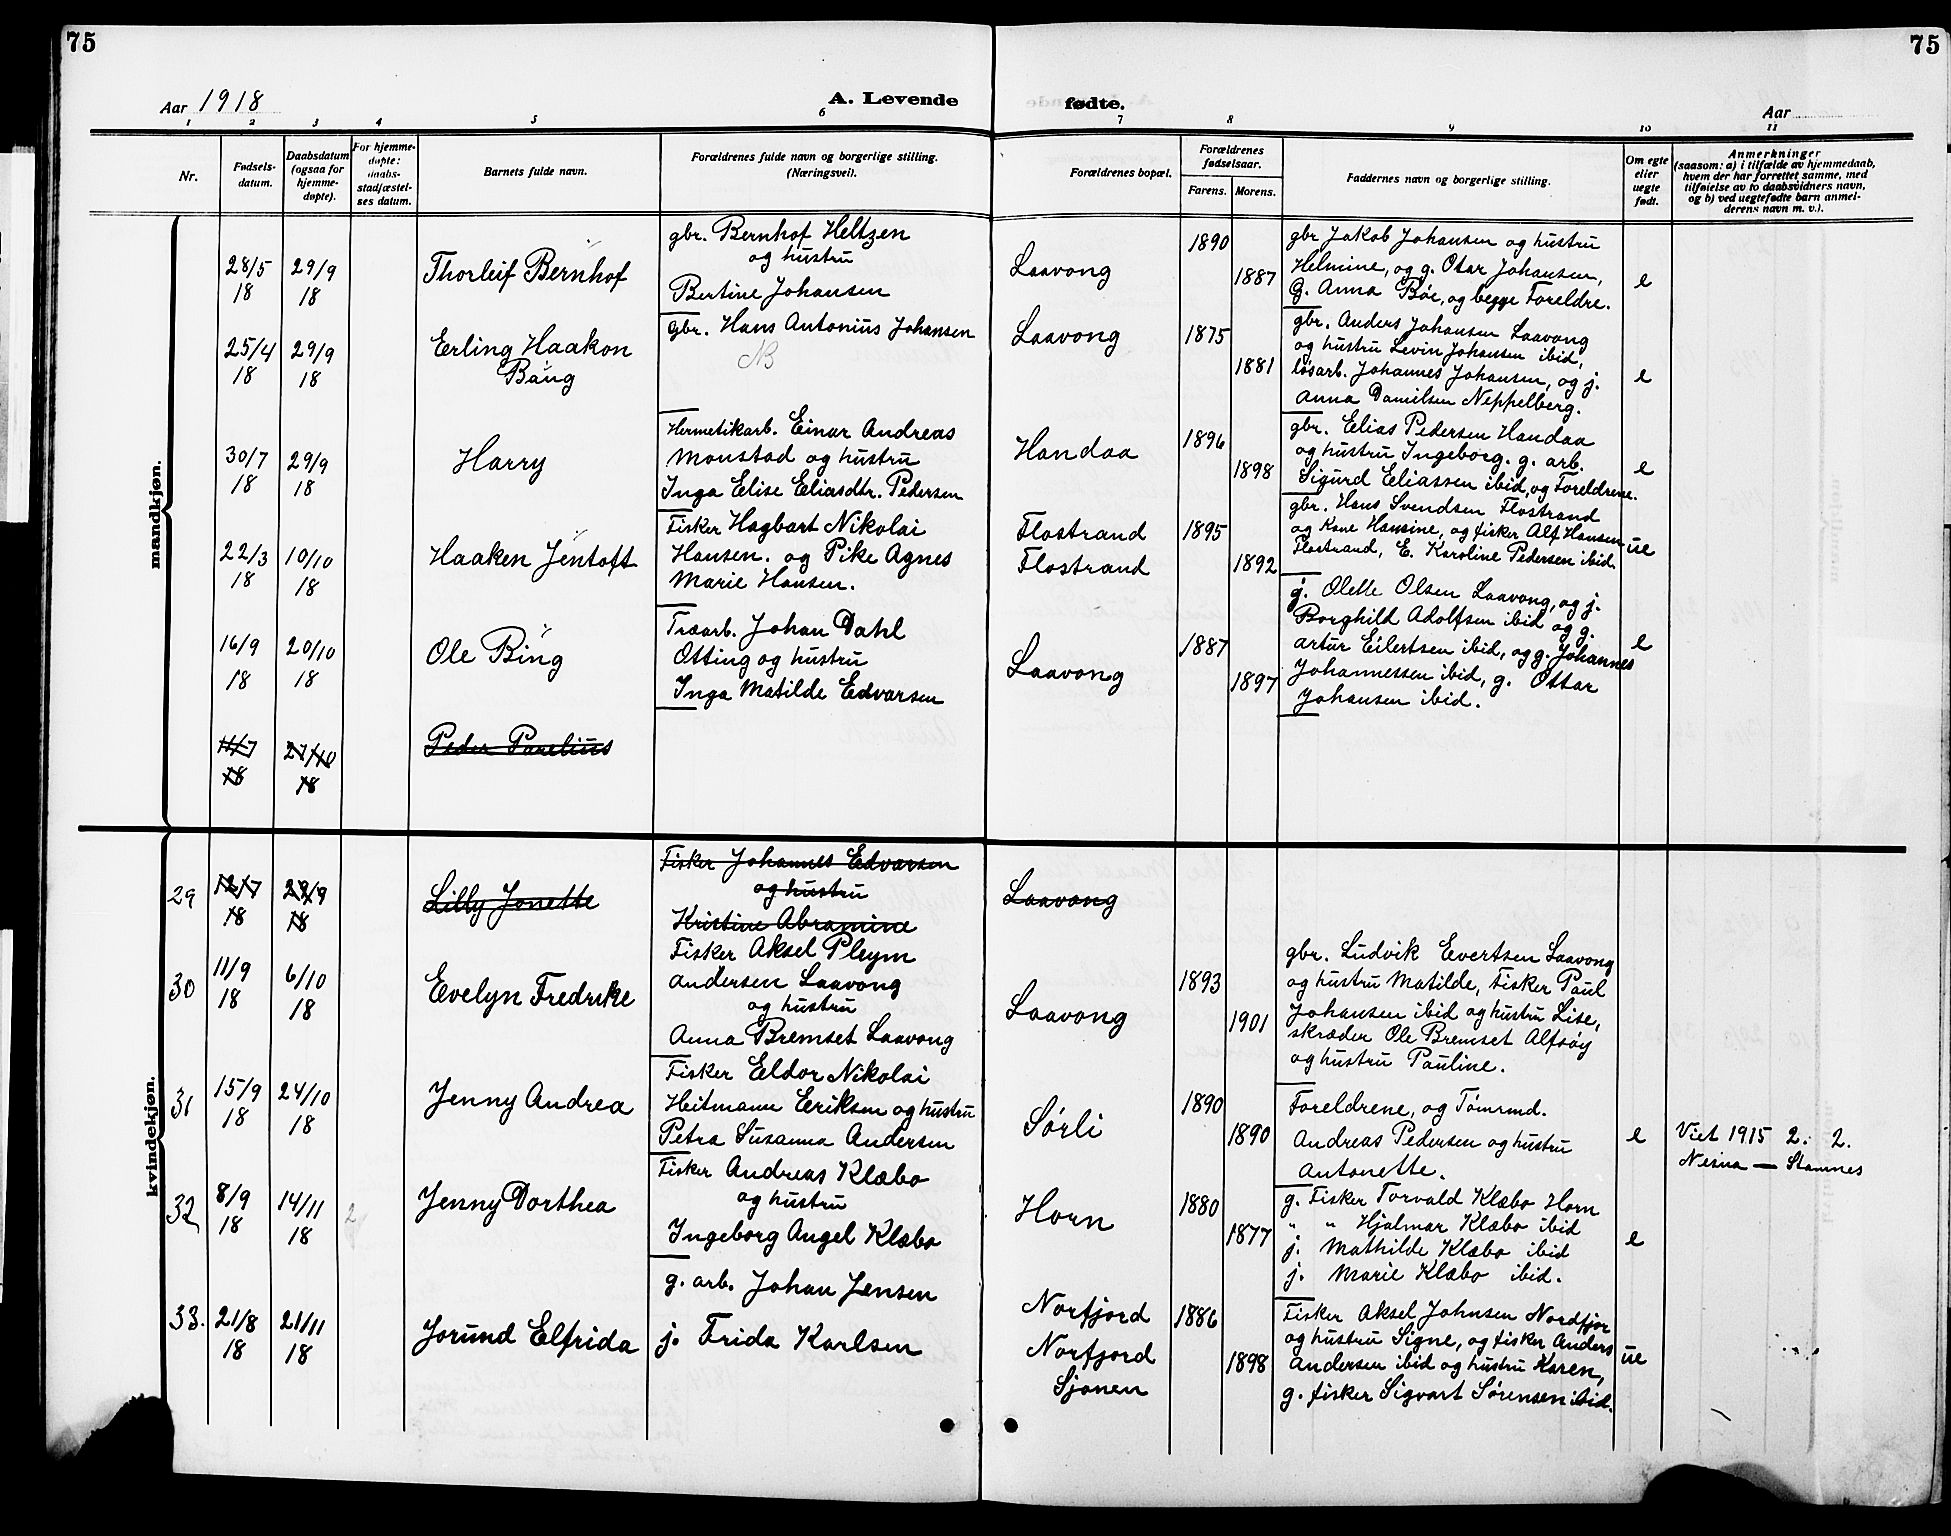 75
75
Aar 1918
A. Levende
fødte.
Aar
1 2 3 4 5 6 7 8 9 10 11
Nr.
Fødsels-
datum.
Daabsdatum
(ogsaa for
hjemme-
døpte).
For hjemme-
døpte:
daabs-
stadfæstel-
ses datum.
Barnets fulde navn.
Forældrenes fulde navn og borgerlige stilling.
(Næringsvei).
Forældrenes bopæl.
Forældrenes
fødselsaar.
Farens. Morens.
Faddernes navn og borgerlige stilling.
Om egte
eller
uegte
født.
Anmerkninger
(saasom: a) i tilfælde av hjemmedaab,
hvem der har forrettet samme, med
tilføielse av to daabsvidners navn,
og b) ved uegtefødte barn anmel-
derens navn m. v.).
mandkjøn.
28/5
18
29/9
18
Thorleif Bernhof
gbr. Bernhof Heltzen
og hustru
Bertine Johansen
Laavong
1890
1887
gbr Jakob Johansen og hustru
Helmine, og g. Otar Johansen,
G. Anna Bóe, og begge Foreldre.
e
25/4
18
29/9
18
Erling Haakon
Bang
gbr. Hans Antonius Johansen
NB
Laavong
1875
1881
gbr. Anders Johansen Laavong
og hustru Levin Johansen ibid,
løsarb. Johannes Johansen, og j.
Anna Danielsen Neppelberg.
e
30/7
18
29/9
18
Harry
Hermetikarb. Einar Andreas
Monstad og hustru
Inga Elise Eliasdtr. Pedersen
Handaa
1896
1898
gbr. Elias Pedersen Handaa
og hustru Ingeborg. g. arb.
Sigurd Eliassen ibid, og Foreldrene.
e
22/3
18
10/10
18
Haaken Jentoft
Fisker Hagbart Nikolai
Hansen. og Pike Agnes
Marie Hansen.
Flostrand
Flostrand
1895
1892
gbr. Hans Svendsen Flostrand
og Kone Hansine, og fisker Alf Hansen
Flostrand, E. Karoline Pedersen ibid.
ue
16/9
18
20/10
18
Ole Bing
Træarb. Johan Dahl
Otting og hustru
Inga Matilde Edvarsen
Laavong
1887
1897
j. Olette Olsen Laavong, og j.
Borghild Adolfsen ibid og g.
Artur Eilertsen ibid, og g. Johannes
Johannessen ibid, g. Ottar
Johansen ibid.
e
11/7
18
27/10
18
Peder Parelius
kvindekjøn.
29
12/7
18
29/9
18
Lilly Jonette
Fisker Johannes Edvarsen
og hustru
Kristine Abramine
Laavong
30
11/9
18
6/10
18
Evelyn Fredrike
Fisker Aksel Pleym
Andersen Laavong
og hustru
Anna Bremset Laavong
Laavong
1893
1901
gbr. Ludvik Evertsen Laavong
og hustru Matilde, Fisker Paul
Johansen ibid og hustru Lise,
skræder Ole Bremset Alfsøy
og hustru Pauline.
31
15/9
18
24/10
18
Jenny Andrea
Fisker Eldor Nikolai
Heitmann Eriksen og hustru
Petra Susanna Andersen
Sørli
1890
1890
Foreldrene, og Tømrmd.
Andreas Pedersen og hustru
Antonette.
e
Viet 1915 2. 2.
Nesna — Stamnes
32
8/9
18
14/11
18
2
Jenny Dorthea
Fisker Andreas Klæbo
og hustru
Ingeborg Angel Klæbo
Horn
1880
1877
g. Fisker Torvald Klæbo Horn
" " Hjalmar Klæbo ibid
j. Mathilde Klæbo ibid
j. Marie Klæbo ibid.
e
33.
21/8
18
21/11
18
Jorund Elfrida
g. arb. Johan Jensen
j. Frida Karlsen
Norfjord
Norfjord
Sjonen
1886
1898
Fisker Aksel Johnsen Nordfjor
og hustru Signe, og fisker Anders
Andersen ibid og hustru Karen,
g. fisker Sigvart Sørensen ibid.
ue